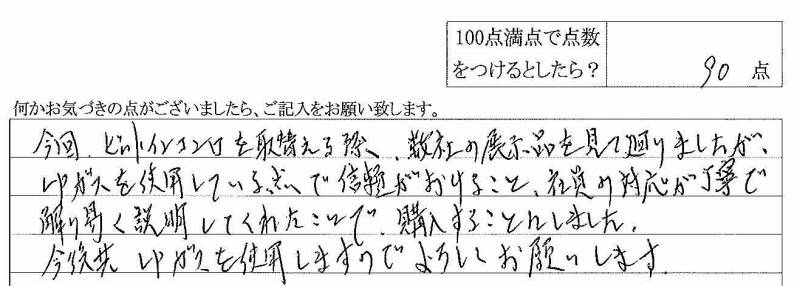 100点満点で点数
をつけるとしたら？
90 点
何かお気づきの点がございましたら、ご記入をお願い致します。
今回、ビルトインコンロを取替える際、数社の展示品を見て廻りましたが、
LPガスを使用している点で信頼がおけること、社員の対応が丁寧で
解り易く説明してくれたことで、購入することにしました。
今後共LPガスを使用しますのでよろしくお願いします。